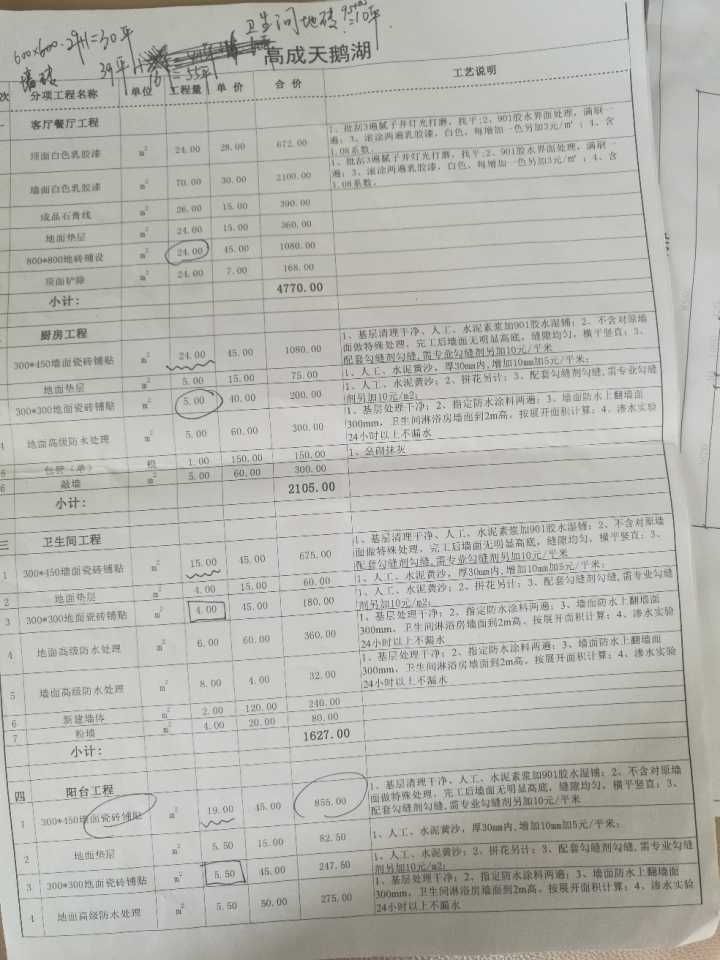 600×600.29+1=30坪
卫生间地砖
=10坪
墙砖
39坪+16=55坪
高成天鹅湖
次 分项工程名称 单位 工程量 单 价 合 价 工艺说明
客厅餐厅工程
顶面白色乳胶漆 m² 24.00 28.00 672.00 1、批刮3遍腻子并灯光打磨，找平；2、901胶水界面处理，满刷一遍；3、滚涂两遍乳胶漆，白色，每增加一色另加3元/㎡；4、含1.08系数。
墙面白色乳胶漆 m² 70.00 30.00 2100.00 1、批刮3遍腻子并灯光打磨，找平；2、901胶水界面处理，满刷一遍；3、滚涂两遍乳胶漆，白色，每增加一色另加3元/㎡；4、含1.08系数。
成品石膏线 m² 26.00 15.00 390.00
地面垫层 m² 24.00 15.00 360.00
800*800地砖铺设 m² 24.00 45.00 1080.00
顶面铲除 m² 24.00 7.00 168.00
小计： 4770.00
厨房工程
300*450墙面瓷砖铺贴 m² 24.00 45.00 1080.00 1、基层清理干净、人工、水泥素浆加901胶水湿铺；2、不含对原墙面做特殊处理，完工后墙面无明显高底，缝隙均匀，横平竖直；3、配套勾缝剂勾缝,需专业勾缝剂另加10元/平米
地面垫层 m² 5.00 15.00 75.00 1、人工、水泥黄沙，厚30mm内,增加10mm加5元/平米；
300*300地面瓷砖铺贴 m² 5.00 40.00 200.00 1、人工、水泥黄沙；2、拼花另计；3、配套勾缝剂勾缝,需专业勾缝剂另加10元/m2；
4 地面高级防水处理 m² 5.00 60.00 300.00 1、基层处理干净；2、指定防水涂料两遍；3、墙面防水上翻墙面300mm，卫生间淋浴房墙面到2m高，按展开面积计算；4、渗水实验24小时以上不漏水
5 包管（单） 根 1.00 150.00 150.00
6 敲墙 m² 5.00 60.00 300.00
小计： 2105.00
三 卫生间工程
1 300*450墙面瓷砖铺贴 m² 15.00 45.00 675.00 1、基层清理干净、人工、水泥素浆加901胶水湿铺；2、不含对原墙面做特殊处理，完工后墙面无明显高底，缝隙均匀，横平竖直；3、配套勾缝剂勾缝,需专业勾缝剂另加10元/平米
2 地面垫层 m² 4.00 15.00 60.00 1、人工、水泥黄沙，厚30mm内,增加10mm加5元/平米；
3 300*300地面瓷砖铺贴 m² 4.00 45.00 180.00 1、人工、水泥黄沙；2、拼花另计；3、配套勾缝剂勾缝,需专业勾缝剂另加10元/m2；
4 地面高级防水处理 m² 6.00 60.00 360.00 1、基层处理干净；2、指定防水涂料两遍；3、墙面防水上翻墙面300mm，卫生间淋浴房墙面到2m高，按展开面积计算；4、渗水实验24小时以上不漏水
5 墙面高级防水处理 m² 8.00 4.00 32.00 1、基层处理干净；2、指定防水涂料两遍；3、墙面防水上翻墙面300mm，卫生间淋浴房墙面到2m高，按展开面积计算；4、渗水实验24小时以上不漏水
6 新建墙体 m² 2.00 120.00 240.00
7 粉墙 m² 4.00 20.00 80.00
小计： 1627.00
四 阳台工程
1 300*450墙面瓷砖铺贴 m² 19.00 45.00 855.00 1、基层清理干净、人工、水泥素浆加901胶水湿铺；2、不含对原墙面做特殊处理，完工后墙面无明显高底，缝隙均匀，横平竖直；3、配套勾缝剂勾缝,需专业勾缝剂另加10元/平米
2 地面垫层 m² 5.50 15.00 82.50 1、人工、水泥黄沙，厚30mm内,增加10mm加5元/平米；
3 300*300地面瓷砖铺贴 m² 5.50 45.00 247.50 1、人工、水泥黄沙；2、拼花另计；3、配套勾缝剂勾缝,需专业勾缝剂另加10元/m2；
4 地面高级防水处理 m² 5.50 50.00 275.00 1、基层处理干净；2、指定防水涂料两遍；3、墙面防水上翻墙面300mm，卫生间淋浴房墙面到2m高，按展开面积计算；4、渗水实验24小时以上不漏水